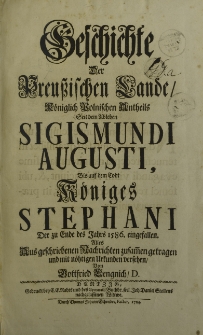 Geschichte
Der
Preußischen Lande/
Königlich-Polnischen Antheils
Seit dem Ableben
SIGISMUNDI
AUGUSTI,
Biß auf dem Todt
Königes
STEPHANI
Der zu Ende des Jahrs 1586. eingefallen.
Alles
Aus geschriebenen Nachrichten zusammen getragen
und mit nöthigen Urkunden versehen,
Von
Gottfried Lengnich/ D.
DANTZIG,